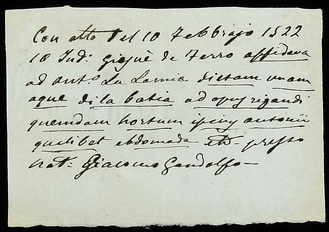 Con atto del 10 Febbrajo 1522
10 Ind: Giosuè de Ferro affidava
ad Ant.o La Lamia dietam unam
aque di la batia ad opus rigandi
quemdam hortum ipsius Antonii
qualibet ebdomada etc presso
Not.r Giacomo Gandolfo